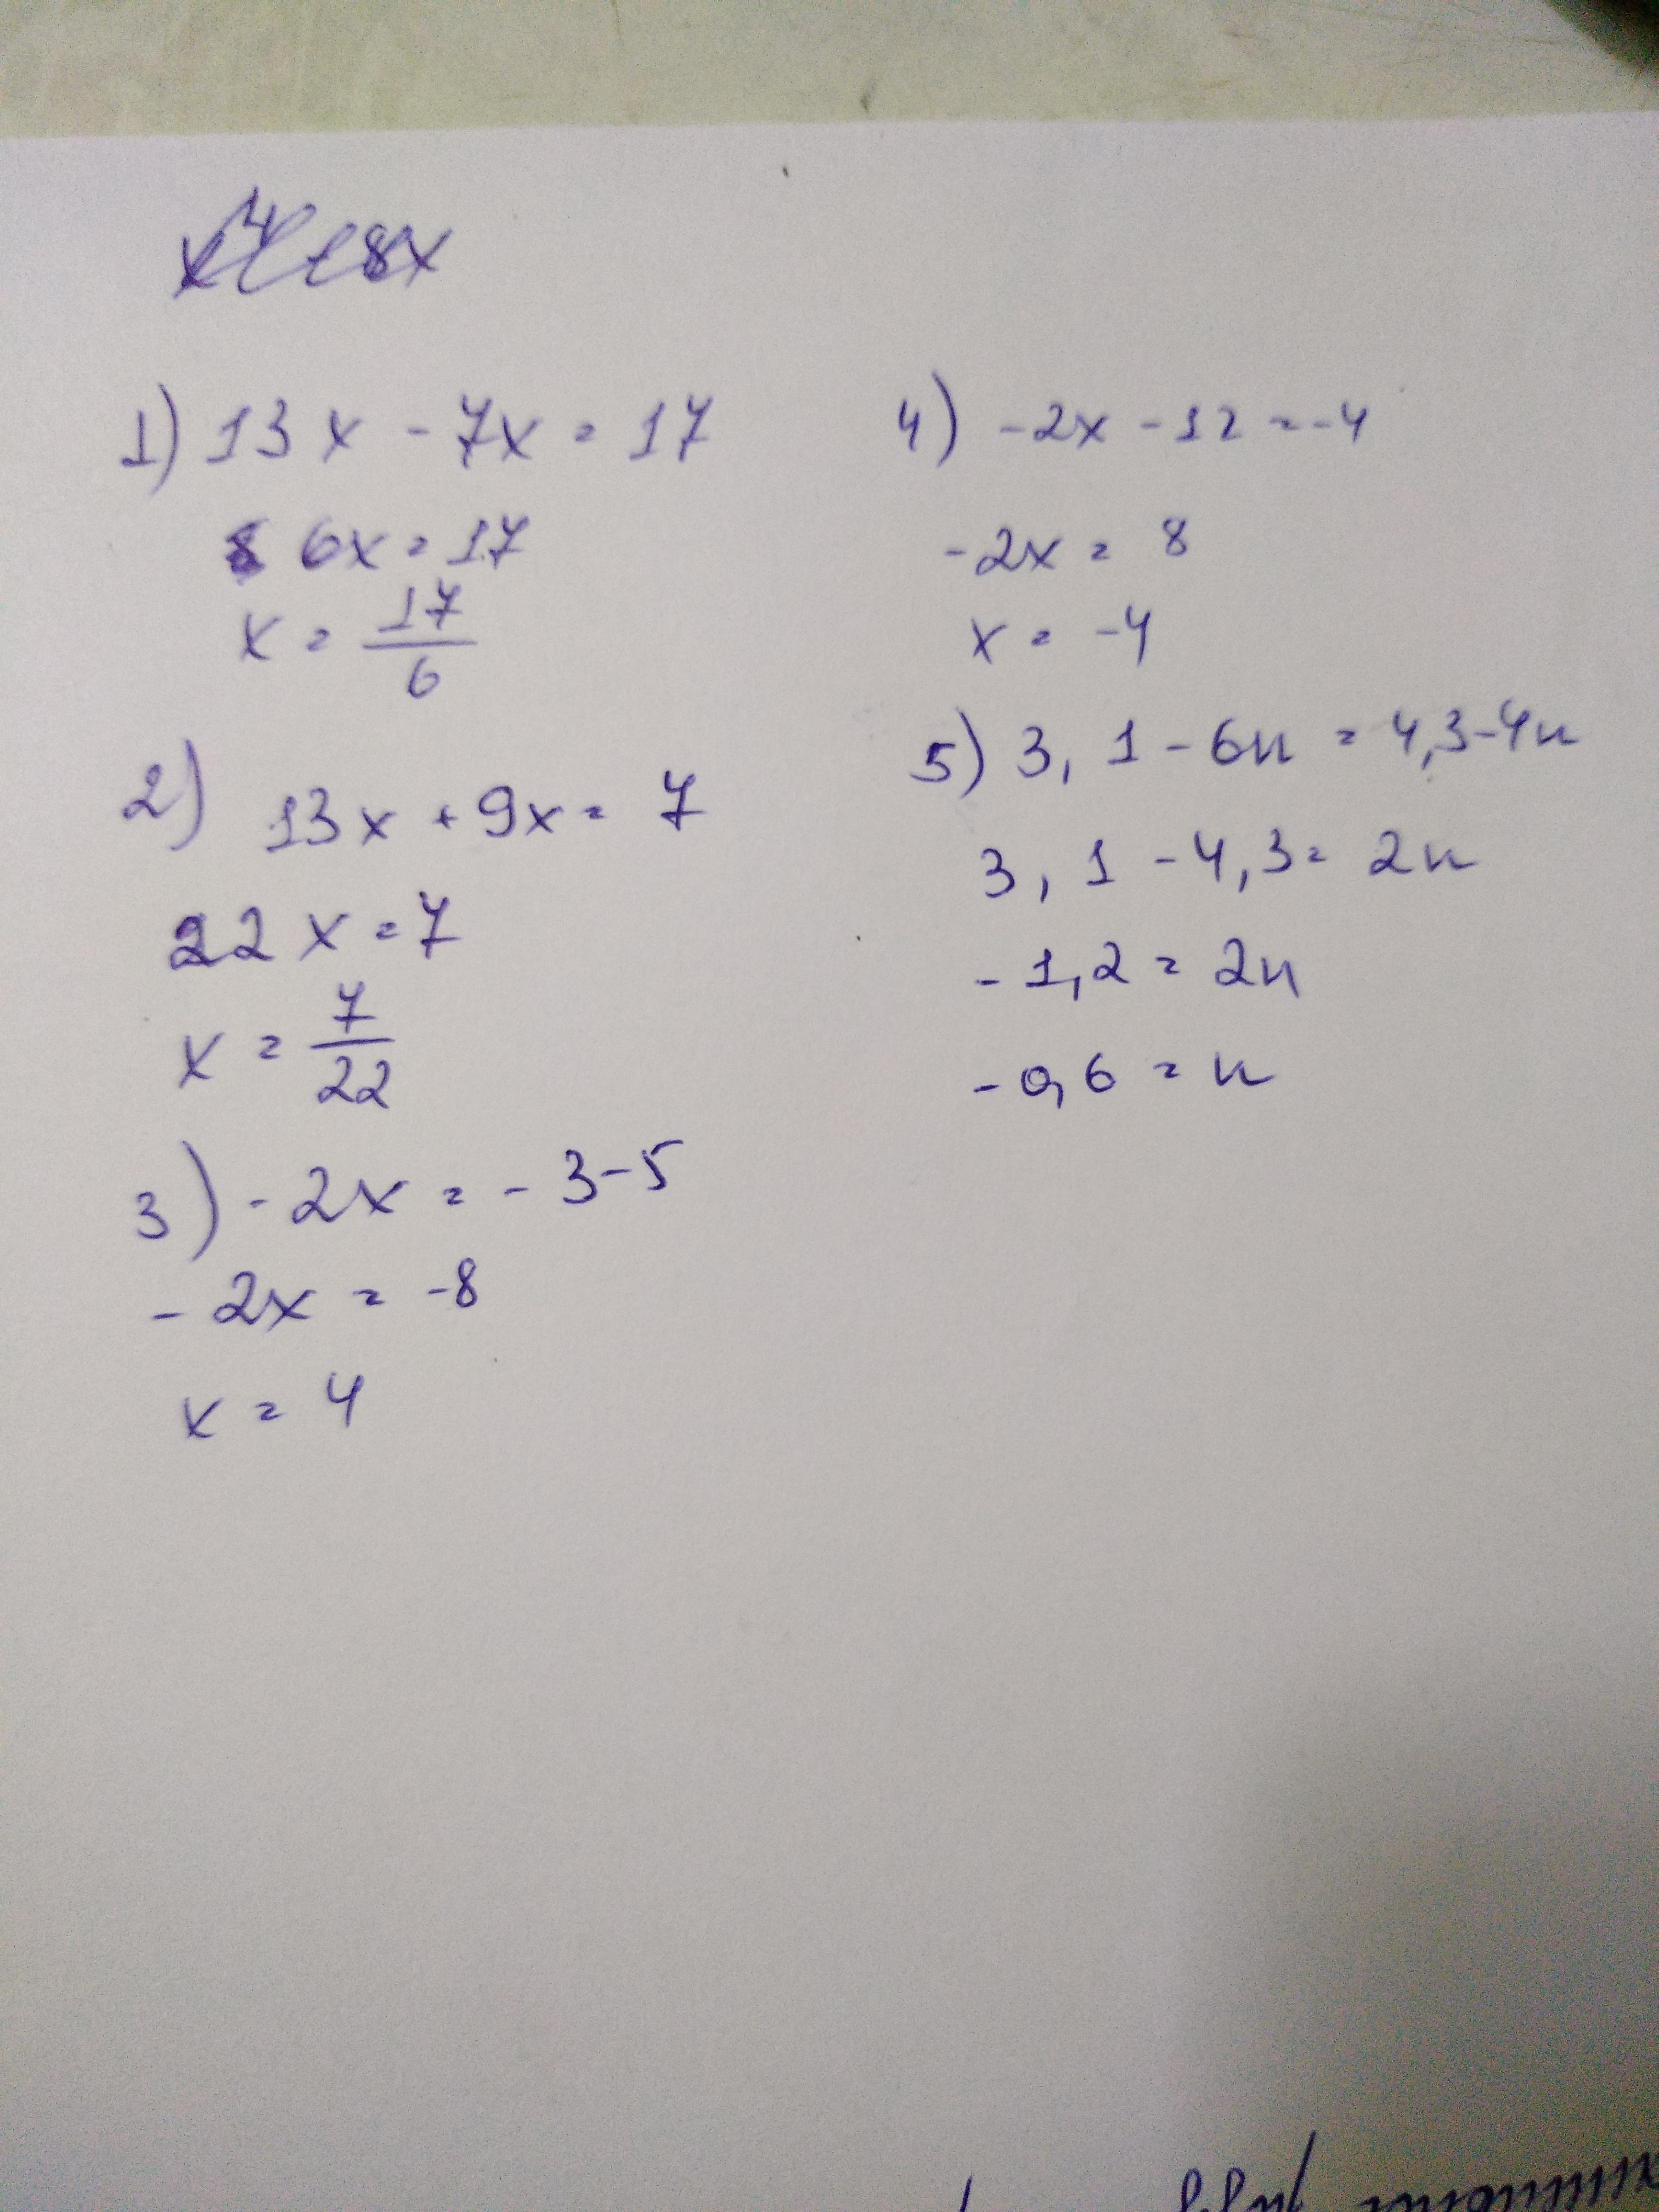 1) 13x - 7x = 17
6x = 17
x = 17/6
2) 13x + 9x = 7
22x = 7
x = 7/22
3) -2x = -3-5
-2x = -8
x = 4
4) -2x - 12 = -4
-2x = 8
x = -4
5) 3,1 - 6n = 4,3-4n
3,1 - 4,3 = 2n
-1,2 = 2n
-0,6 = n